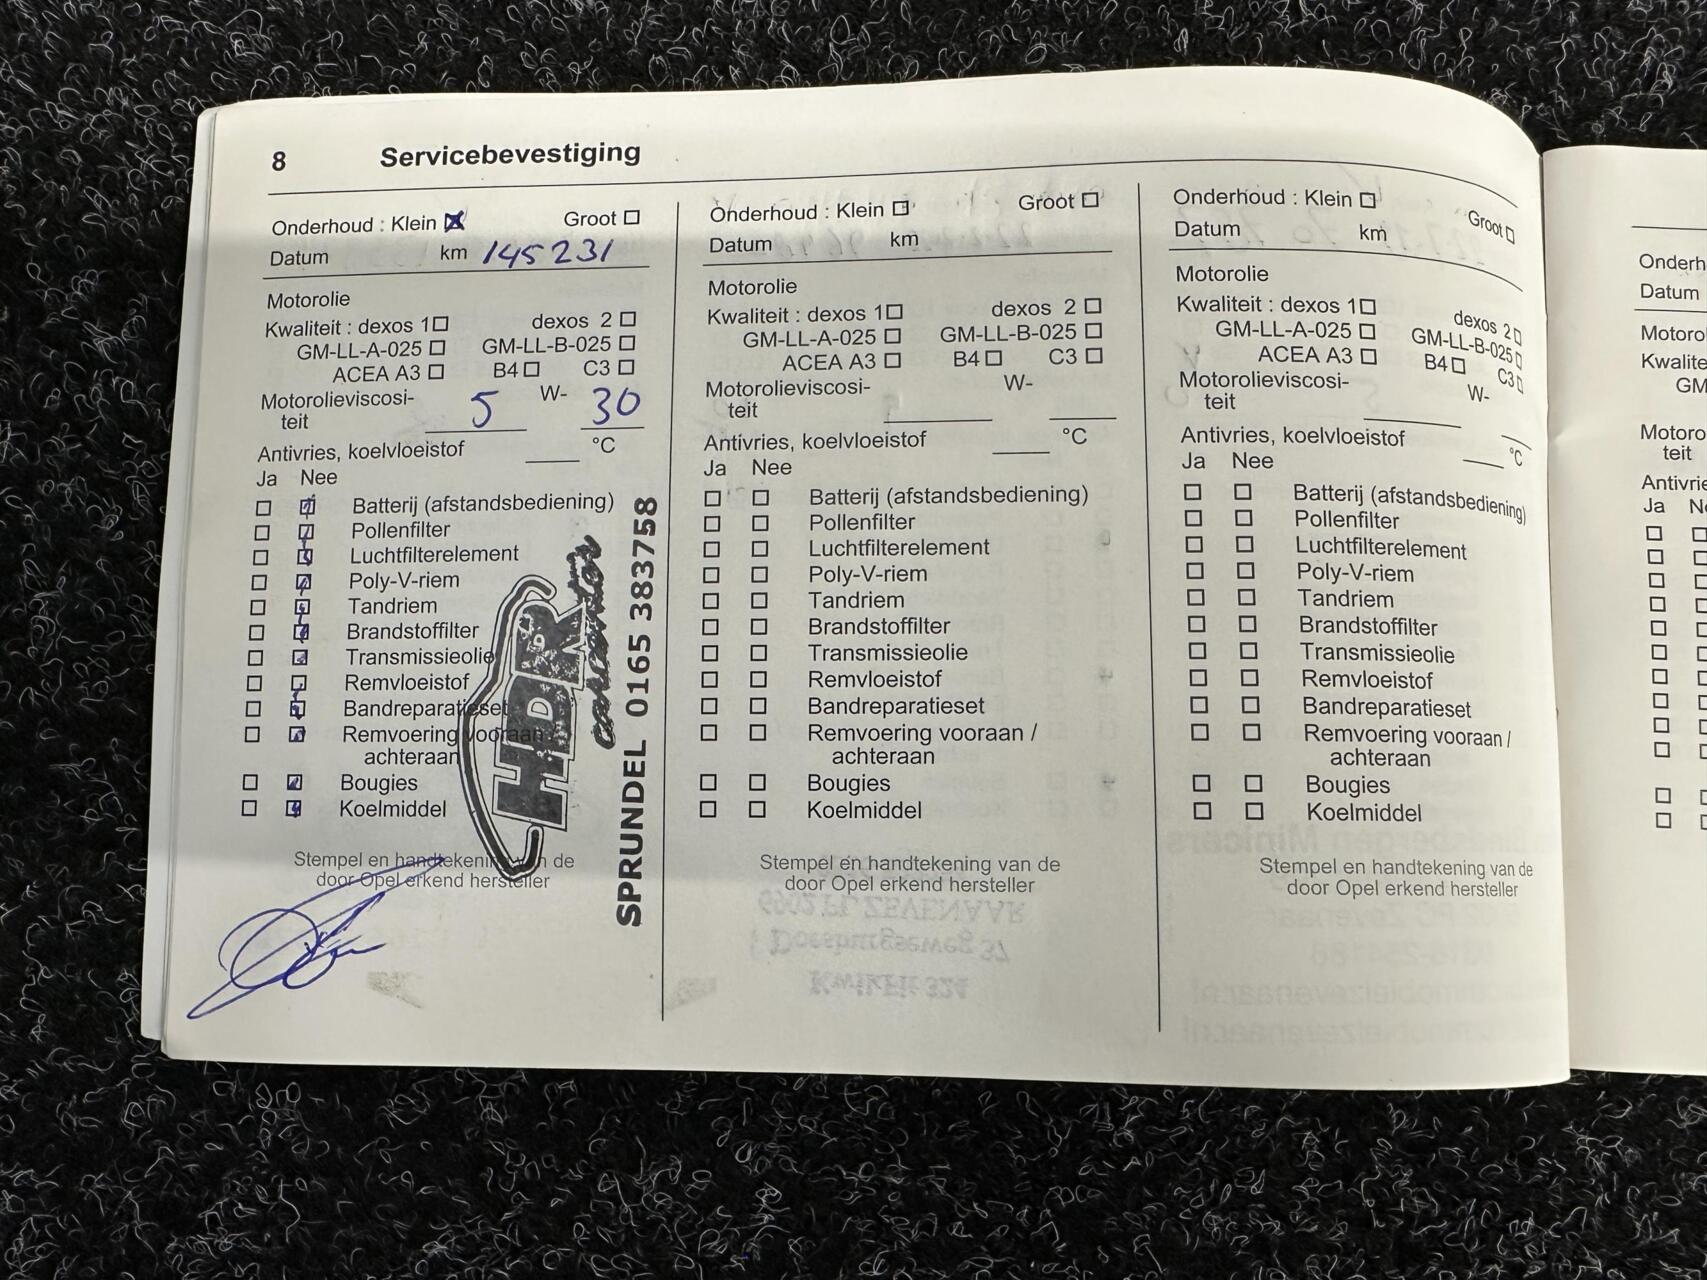 8 Servicebevestiging
Onderhoud : Klein Groot
Datum km 145231
Motorolie
Kwaliteit : dexos 1 dexos 2
GM-LL-A-025 GM-LL-B-025
ACEA A3 B4 C3
Motorolieviscosi-
teit 5 W- 30
Antivries, koelvloeistof °C
Ja Nee
Batterij (afstandsbediening)
Pollenfilter
Luchtfilterelement
Poly-V-riem
Tandriem
Brandstoffilter
Transmissieolie
Remvloeistof
Bandreparatieset
Remvoering vooraan /
achteraan
Bougies
Koelmiddel
Stempel en handtekening van de
door Opel erkend hersteller
HDR
carcenter
SPRUNDEL 0165 383758
Onderhoud : Klein Groot
Datum km
Motorolie
Kwaliteit : dexos 1 dexos 2
GM-LL-A-025 GM-LL-B-025
ACEA A3 B4 C3
Motorolieviscosi-
teit W-
Antivries, koelvloeistof °C
Ja Nee
Batterij (afstandsbediening)
Pollenfilter
Luchtfilterelement
Poly-V-riem
Tandriem
Brandstoffilter
Transmissieolie
Remvloeistof
Bandreparatieset
Remvoering vooraan /
achteraan
Bougies
Koelmiddel
Stempel en handtekening van de
door Opel erkend hersteller
Onderhoud : Klein Groot
Datum km
Motorolie
Kwaliteit : dexos 1 dexos 2
GM-LL-A-025 GM-LL-B-025
ACEA A3 B4 C3
Motorolieviscosi-
teit W-
Antivries, koelvloeistof °C
Ja Nee
Batterij (afstandsbediening)
Pollenfilter
Luchtfilterelement
Poly-V-riem
Tandriem
Brandstoffilter
Transmissieolie
Remvloeistof
Bandreparatieset
Remvoering vooraan /
achteraan
Bougies
Koelmiddel
Stempel en handtekening van de
door Opel erkend hersteller
Onderh
Datum
Motoro
Kwalite
GM
Motoro
teit
Antivrie
Ja N